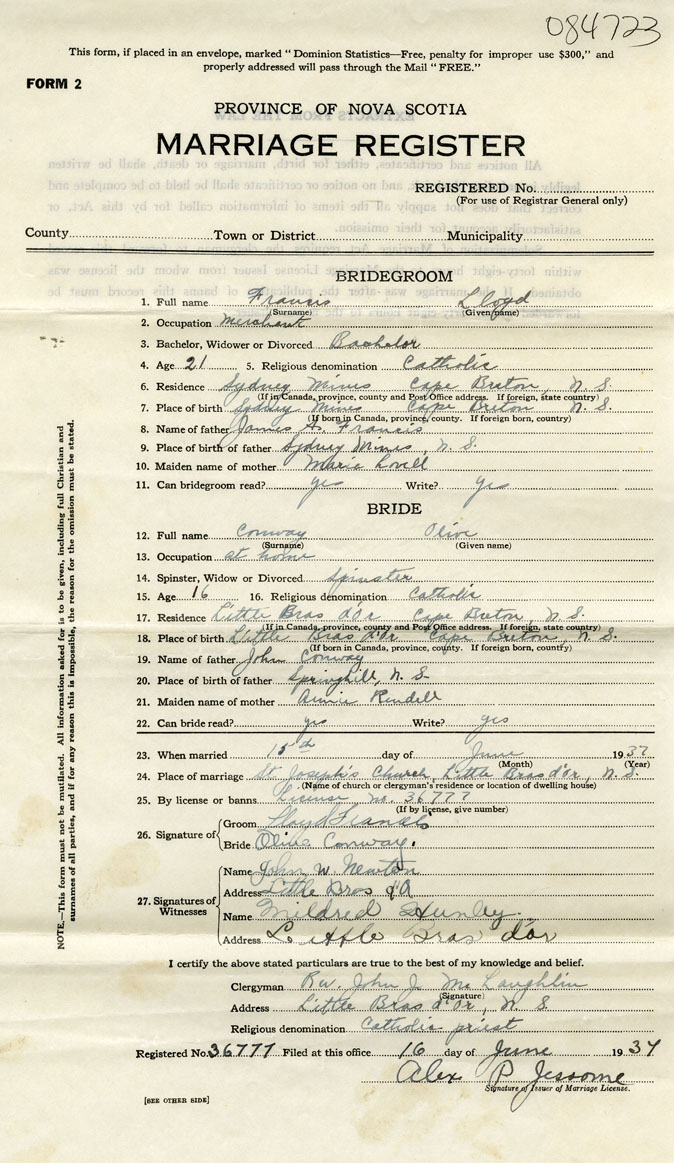 084723
This form, if placed in an envelope, marked "Dominion Statistics—Free, penalty for improper use $300," and
properly addressed will pass through the Mail "FREE."
FORM 2
PROVINCE OF NOVA SCOTIA
MARRIAGE REGISTER
REGISTERED No.
(For use of Registrar General only)
County Town or District Municipality
BRIDEGROOM
1. Full name Francis Lloyd
(Surname) (Given name)
2. Occupation Merchant
3. Bachelor, Widower or Divorced Bachelor
4. Age 21 5. Religious denomination Catholic
6. Residence Sydney Mines Cape Breton, N. S.
(If in Canada, province, county and Post Office address. If foreign, state country)
7. Place of birth Sydney Mines Cape Breton N. S.
(If born in Canada, province, county. If foreign born, country)
8. Name of father James A. Francis
9. Place of birth of father Sydney Mines, N. S.
10. Maiden name of mother Marie Lovell
11. Can bridegroom read? yes Write? yes
BRIDE
12. Full name Conway Olive
(Surname) (Given name)
13. Occupation at home
14. Spinster, Widow or Divorced Spinster
15. Age 16 16. Religious denomination Catholic
17. Residence Little Bras d'Or Cape Breton, N. S.
(If in Canada, province, county and Post Office address. If foreign, state country)
18. Place of birth Little Bras d'Or Cape Breton, N. S.
(If born in Canada, province, county. If foreign born, country)
19. Name of father John Conway
20. Place of birth of father Springhill, N. S.
21. Maiden name of mother Annie Rendell
22. Can bride read? yes Write? yes
23. When married day of June 1937
(Month) (Year)
24. Place of marriage St Joseph's Church, Little Bras d'or, N. S.
(Name of church or clergyman's residence or location of dwelling house)
25. By license or banns License no. 36777
(If by license, give number)
26. Signature of
Groom Lloyd Francis
Bride Olive Conway.
27. Signatures of Witnesses
Name John W. Newton
Address Little Bras d'Or
Name Mildred
Address Little Bras d'or
I certify the above stated particulars are true to the best of my knowledge and belief.
Clergyman Rev. John J. McLaughlin
(Signature)
Address Little Bras d'Or, N. S.
Religious denomination Catholic priest
Registered No. 36777 Filed at this office 16 day of June 1937
Alex P Jessome
Signature of Issuer of Marriage License.
[SEE OTHER SIDE]
NOTE.—This form must not be mutilated. All information asked for is to be given, including full Christian and
surnames of all parties, and if for any reason this is impossible, the reason for the omission must be stated.